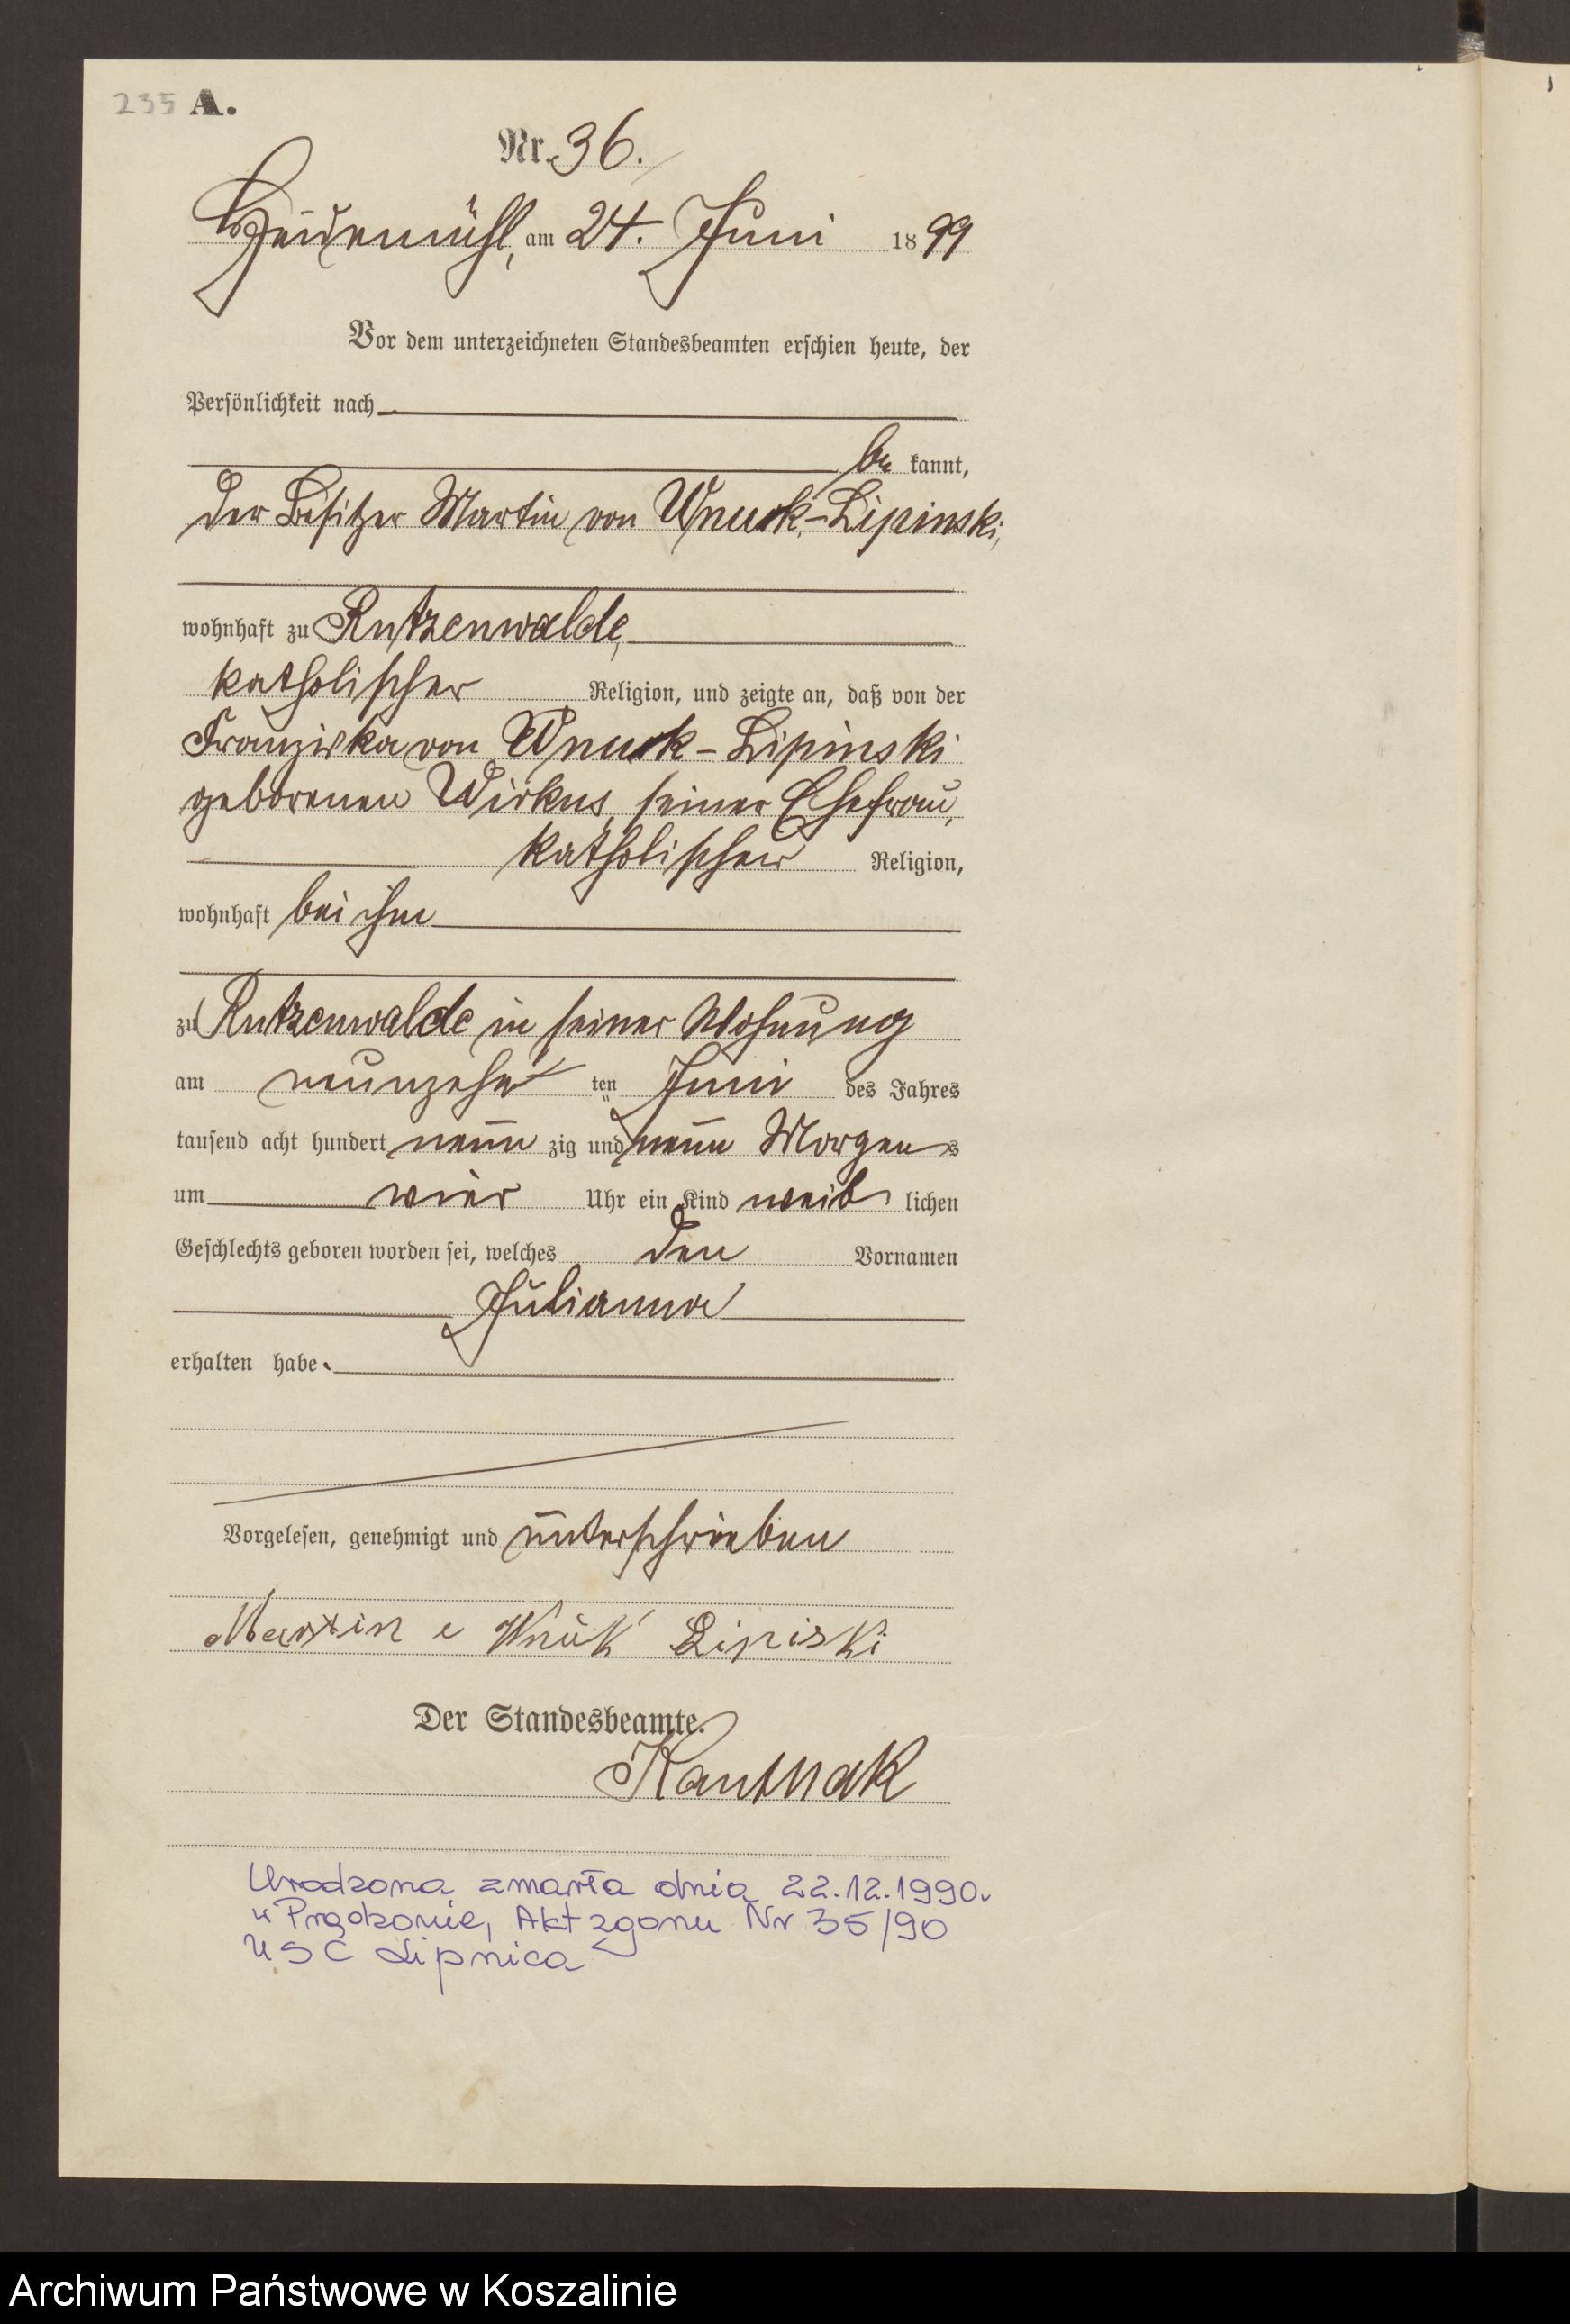 235 A.
Nr. 36.
Heidemühl, am 24. Juni 1899
Vor dem unterzeichneten Standesbeamten erschien heute, der
Persönlichkeit nach
be kannt,
der Besitzer Martin von Wnuck-Lipinski,
wohnhaft zu Rutzenwalde,
katholischer Religion, und zeigte an, daß von der
Franziska von Wnuck-Lipinski
geborenen Wirkus, seiner Ehefrau,
katholischer Religion,
wohnhaft bei ihm
zu Rutzenwalde in seiner Wohnung
am neunzehn ten Juni des Jahres
tausend acht hundert neun zig und neun Morgens
um vier Uhr ein Kind weib lichen
Geschlechts geboren worden sei, welches den Vornamen
Julianna
erhalten habe.
Vorgelesen, genehmigt und unterschrieben
Martin Wnuk Lipiski
Der Standesbeamte.
Urodzona zmarła dnia 22.12.1990.
w Prądzonie, Akt zgonu Nr 35/90
USC Lipnica
Archiwum Państwowe w Koszalinie